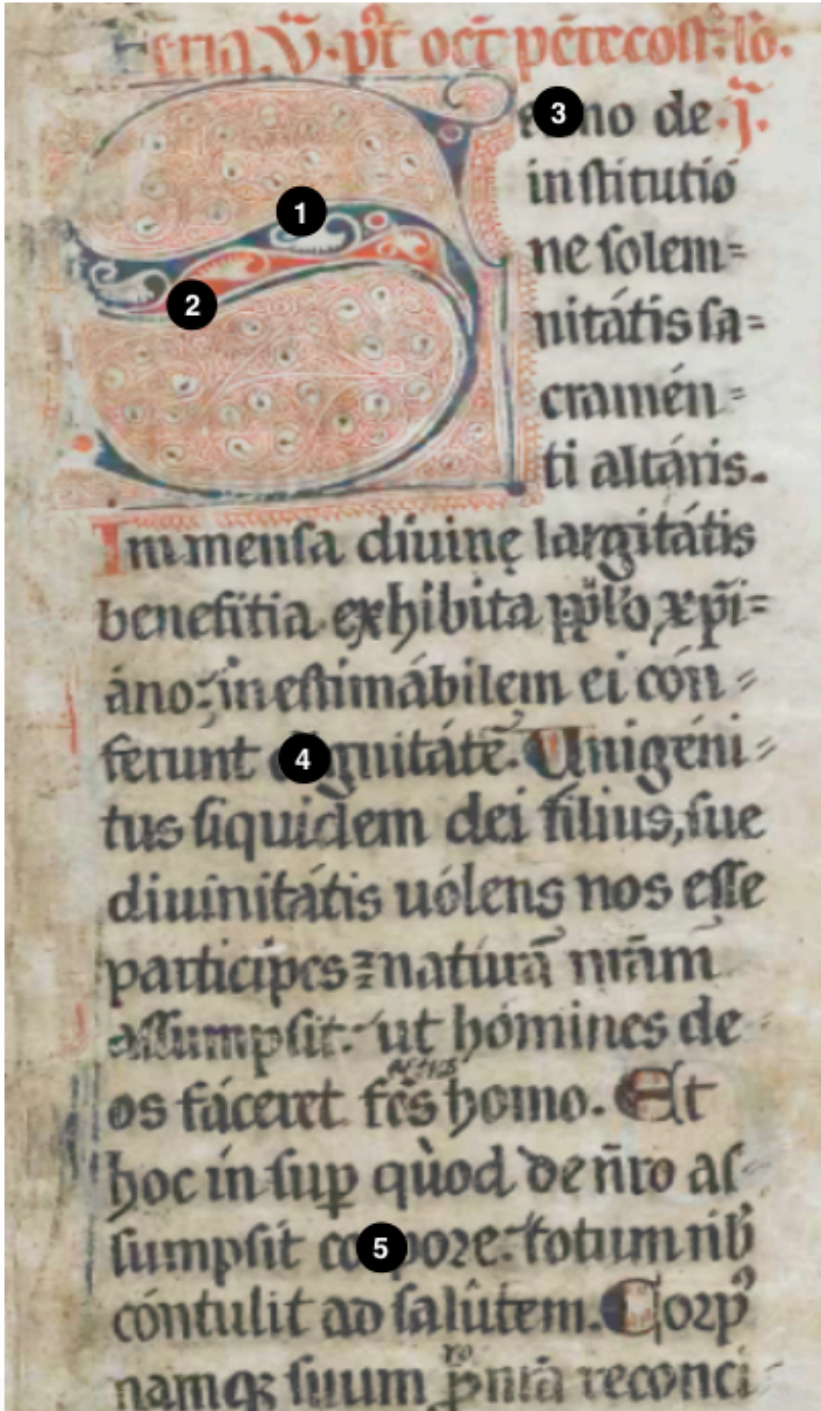 Feria. V̄. pt̄ oct̄ pētecost̄. lō.
S mo de. j̄.
institutió
ne solem=
nitátis sa=
cramén=
ti altáris.
Immensa diuinę largitátis
benefitia exhibita pp̄lo xp̄i=
áno: inestimábilem ei cón=
ferunt gnitátē. Unigéni=
tus siquidem dei filius, sue
diuinitátis uólens nos esse
participes ⁊ naturā nr̄am
assumpsit: ut hómines de
os fáceret fc̄s homo. Et
hoc in sup̱ quòd de nr̄o as=
sumpsit co pore: totum nīb
cóntulit ad salûtem. Corpꝰ
namqꝫ suum reconci=